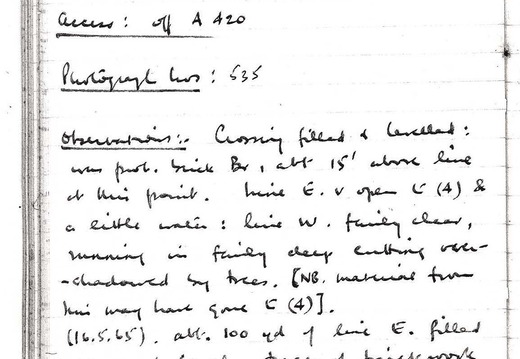 Access: off A 420
Photograph nos: 535
Observations:- Crossing filled & levelled:
was prob. brick Br, abt 15' above line
at this point. Line E. v open to (4) &
a little water: line W. fairly clear,
running in fairly deep cutting over-
-shadowed by trees. [NB. material from
this may have gone to (4)].
(16.5.65). abt. 100 yd of line E. filled
of brickwork